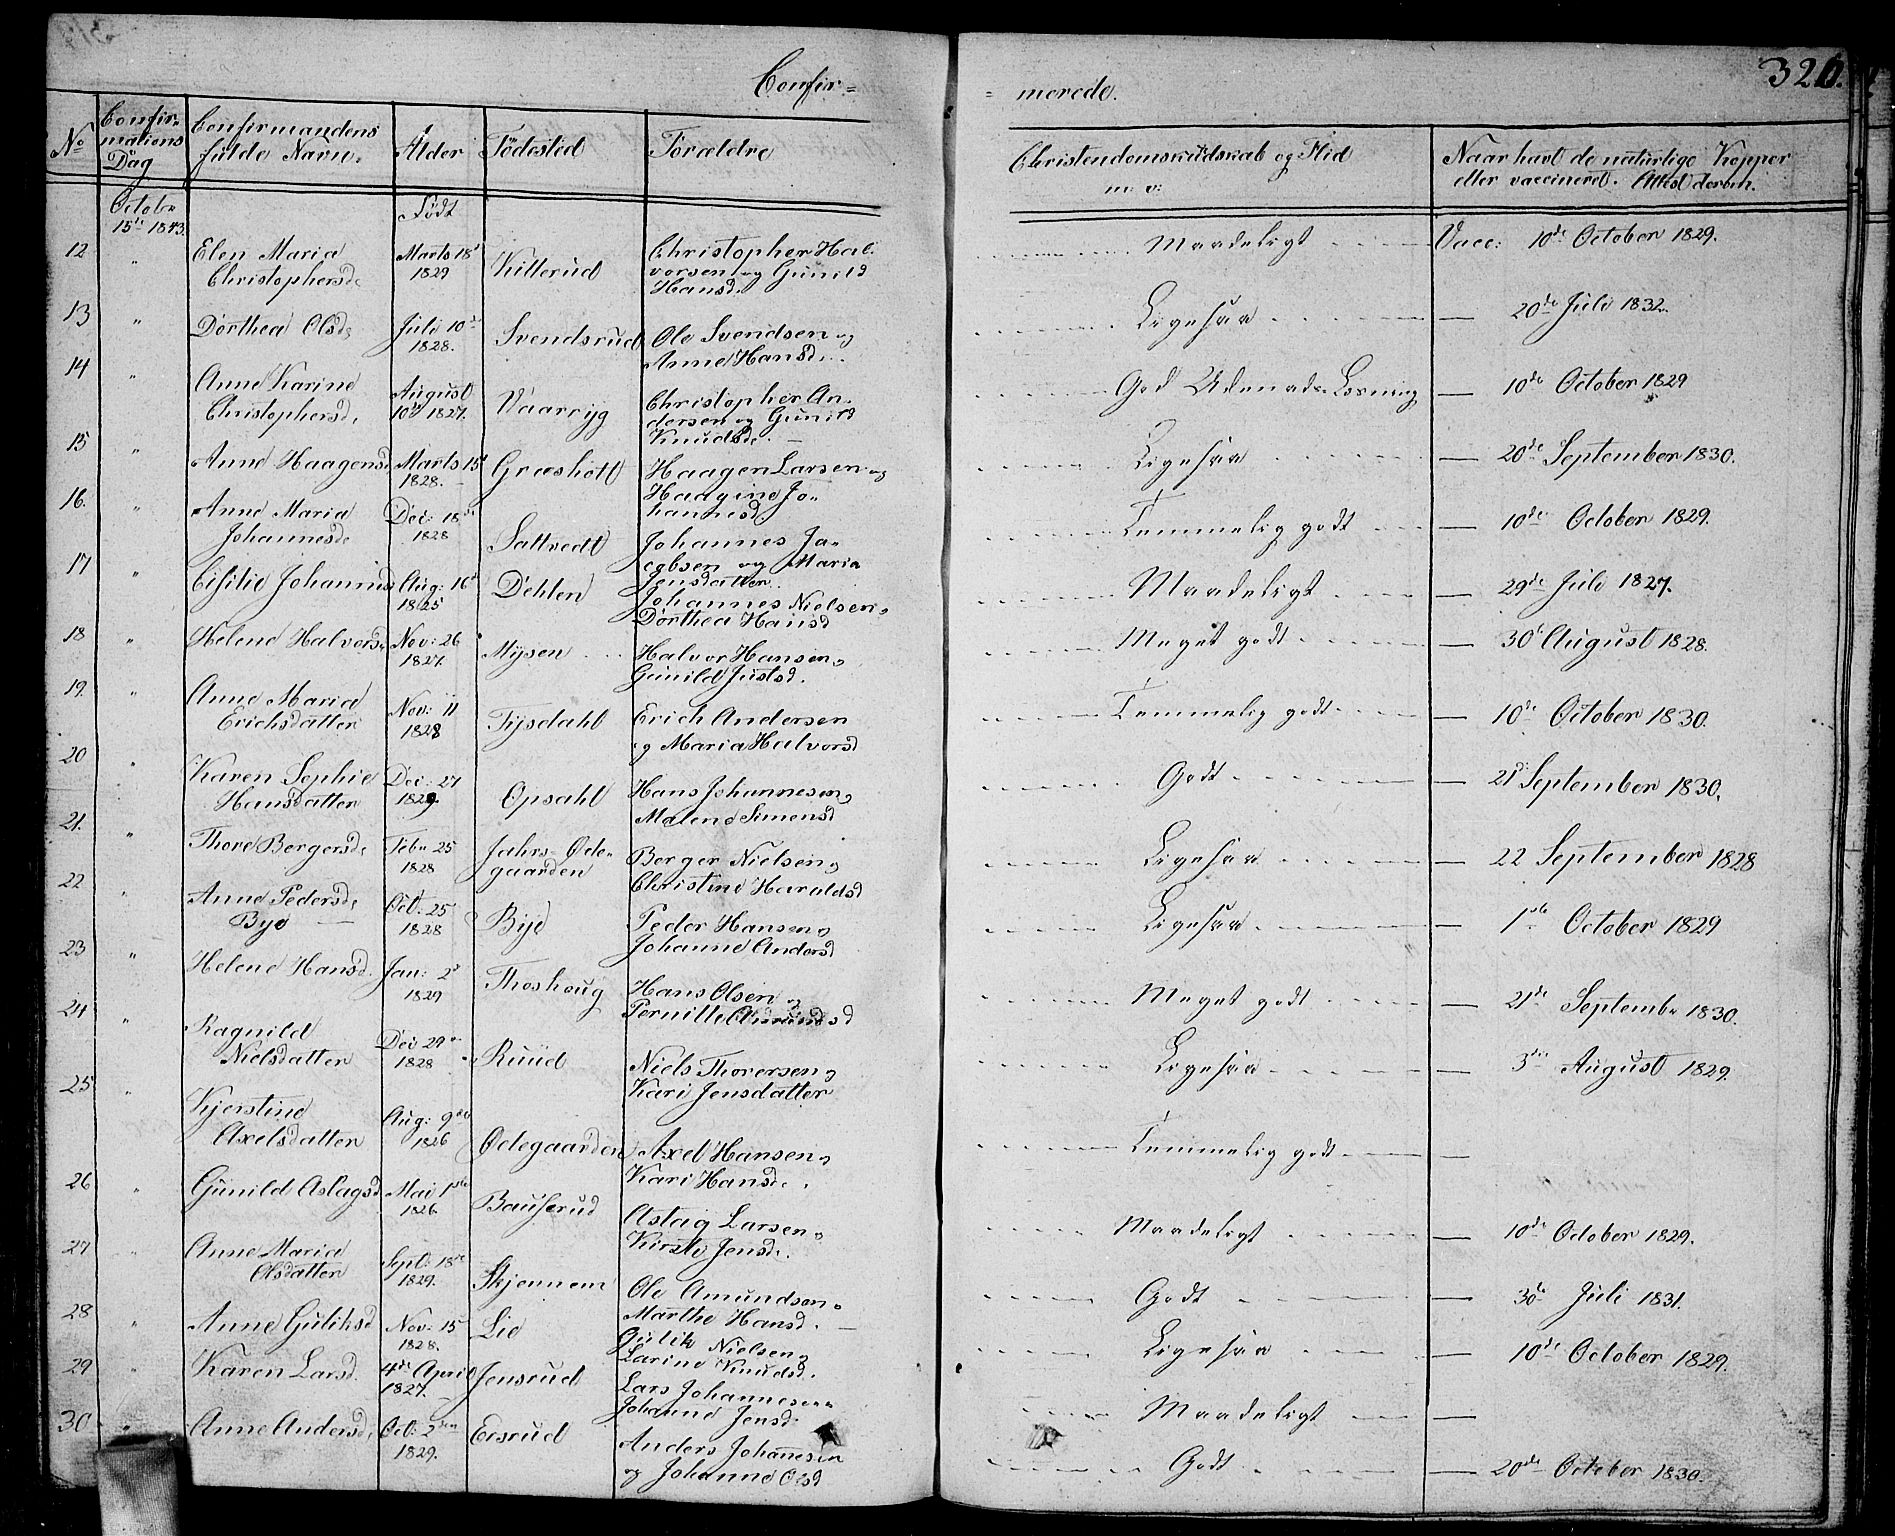 Confir=
= merede.
320.
No
Confir=
mations
Dag
Confirmandens
fulde Navn.
Alder
Födested
Forældre
Christendomskundskab og Flid
m: v:
Naar havt de naturlige Kopper
eller vaccineret. Attest derom.
Octobr
15de 1843.
Født
12 " Elen Maria Marts 18d Kitterud Christopher Hal- Maadeligt Vacc: 10de October 1829.
Christophersd. 1829 vorsen og Gunild
Hansd.
13 " Dorthea Olsd. Juli 10de Svendsrud Ole Svendsen og Ligesaa — 20de Juli 1832.
1828. Anne Hansd.
14 " Anne Karine August Vaarryg Christopher An- God Udenads-Læsning — 10de October 1829
Christophersd. 10de 1827. dersen og Gunild
Knudsd. —
15 " Anne Haagensd Marts 15d Græsholt Haagen Larsen og Ligesaa — 20de September 1830.
1828. — Haagine Jo-
hannesd
16. " Anne Maria Dec: 18de Saltvedt Johannes Ja- Temmelig godt — 10de October 1829.
Johannesd. 1828 cobsen og Maria
Jensdatter.
17 " Cisilie Johannesd Aug: 16d Dehlen Johannes Nielsen Maadeligt — 29de Juli 1827.
1825 Dorthea Hansd
18 " Helene Halvorsd. Nov: 26 Mysen Halvor Hansen Meget godt — 30d August 1828.
1827. Gunild Justsd.
19. " Anne Maria Nov: 11 Fysdahl Erich Andersen Temmelig godt — 10de October 1830.
Erichsdatter 1828 og Maria Halvorsd
20 " Karen Sophie Dec: 27 Opsahl Hans Johannesen Godt — 21de September 1830.
Hansdatter 1829. Malene Simensd
21. " Thore Bergersd. Febr 25 Jahrs-Öde- Berger Nielsen Ligesaa — 22 September 1828
1828 gaarden Christine Haraldsd
22 " Anne Pedersd. Oct. 25 Bye Peder Hansen Ligesaa — 1ste October 1829
Bye — 1828 Johanne Andersd
23 " Helene Hansd. Jan: 2d Throshoug Hans Olsen og Meget godt — 21de Septembr 1830.
1829 Pernille Amundsd
24 " Ragnild Dec 29de Ruud Niels Thorersen Ligesaa — 3die August 1829.
Nielsdatter 1828 Kari Jensdatter
25 " Kjerstine Aug: 9de Ödegaarden Axel Hansen Temmelig godt —
Axelsdatter 1826 Kari Hansd.
26 " Gunild Aslagsd Mai 1ste Bauserud Aslag Larsen Maadeligt — 10de October 1829.
1826. Kirsti Jensd.
27 " Anne Maria Sept: 18de Skjennem Ole Amundsen Godt — 30de Juli 1831.
Olsdatter 1829. Marthe Hansd. —
28 " Anne Guliksd Nov: 15 Lie Gulik Nielsen Ligesaa — 10de October 1829.
1828. Larine Knudsd.
29 " Karen Larsd. 4de April Jensrud Lars Johannesen Maadeligt —
1827. Johanne Jensd.
30 " Anne Andersd. Oct: 2den Ersrud Anders Johanesen Godt — 20de October 1830.
1829. og Johanne Olsd